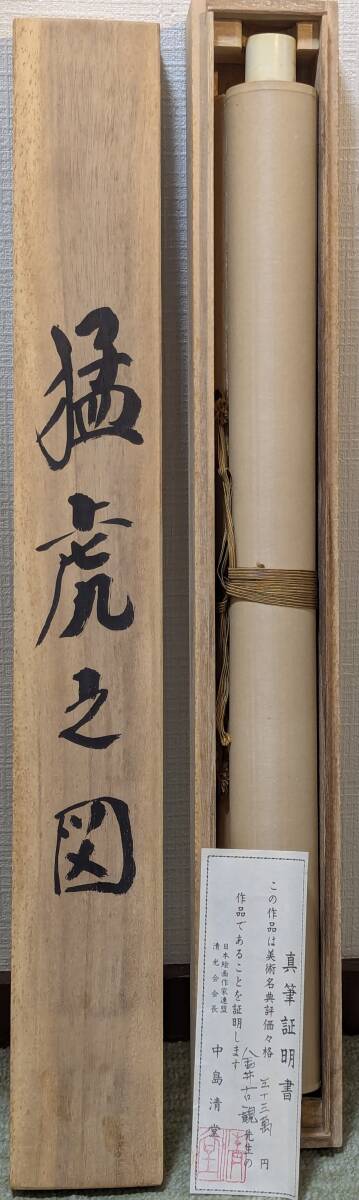 猛虎之図
真筆証明書
この作品は美術名典評価々格 三十三萬 円
金井古観先生の
作品であることを証明します
日本絵画作家連盟
清光会会長
中島清堂